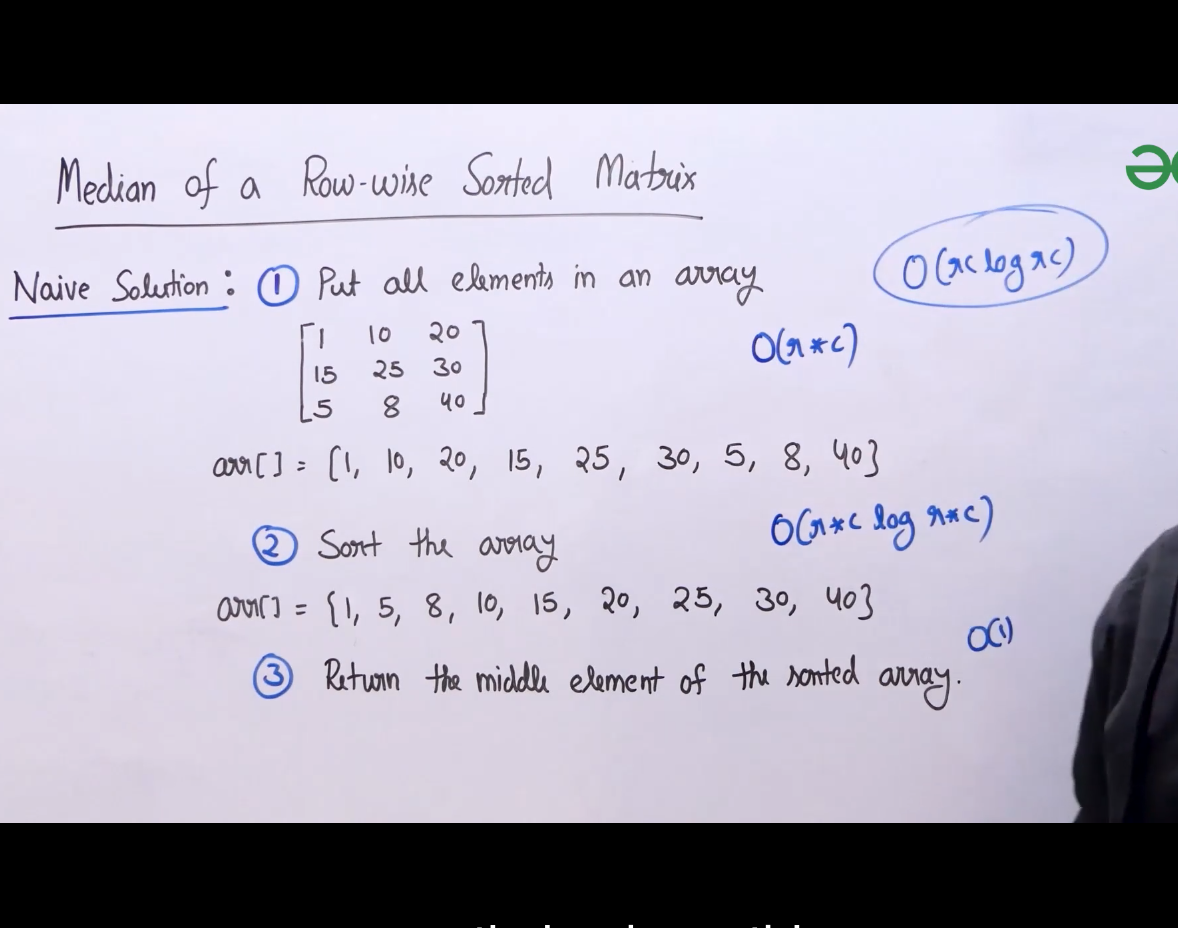 Median of a Row-wise Sorted Matrix
O(rc log rc)
Naive Solution: ① Put all elements in an array
O(r*c)
1 10 20
15 25 30
5 8 40
arr[] = {1, 10, 20, 15, 25, 30, 5, 8, 40}
② Sort the array
O(r*c log r*c)
arr[] = {1, 5, 8, 10, 15, 20, 25, 30, 40}
O(1)
③ Return the middle element of the sorted array.